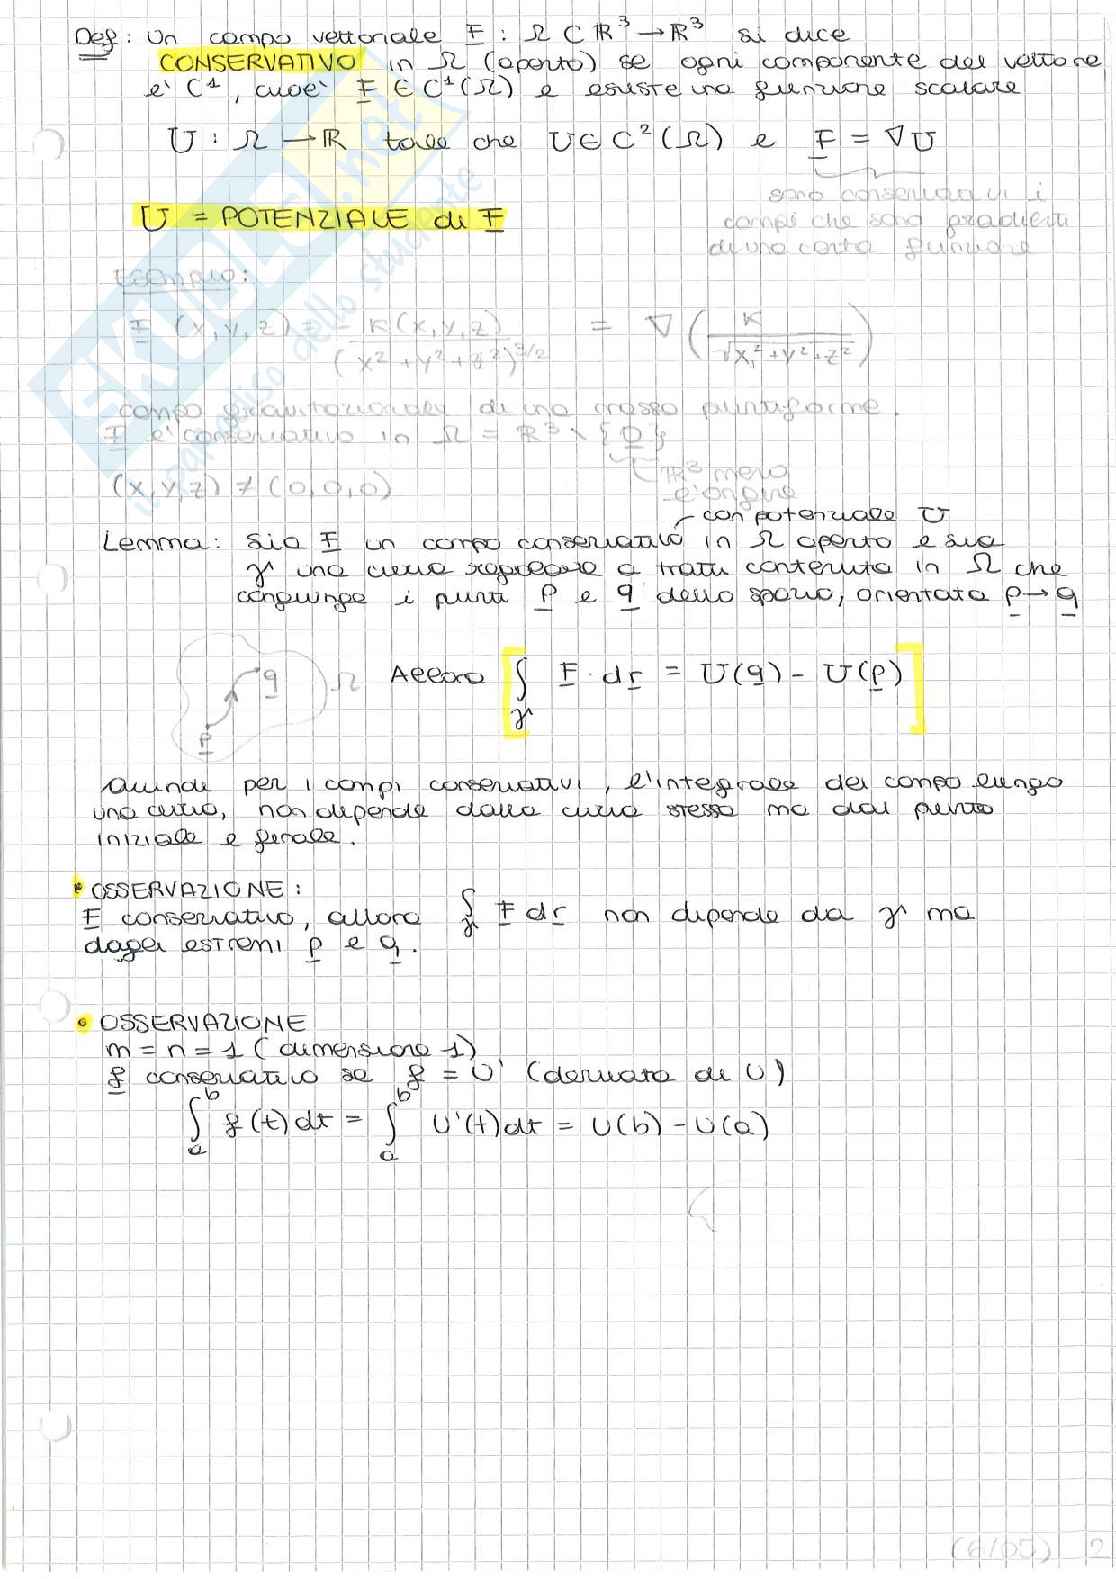 Def: Un campo vettoriale F : Ω ⊂ ℝ³ → ℝ³ si dice
CONSERVATIVO in Ω (aperto) se ogni componente del vettore
e' C¹, cioe' F ∈ C¹(Ω) e esiste una funzione scalare
U : Ω → ℝ tale che U ∈ C²(Ω) e F = ∇U
sono conservativi i
campi che sono gradienti
di una certa funzione
U = POTENZIALE di F
Esempio:
F (x,y,z) = - K(x,y,z) / (x²+y²+z²)^3/2 = ∇ ( K / √x²+y²+z² )
campo gravitazionale di una massa puntiforme.
F e' conservativo in Ω = ℝ³ \ {0}
ℝ³ meno
l'origine
(x,y,z) ≠ (0,0,0)
con potenziale U
Lemma: Sia F un campo conservativo in Ω aperto e sia
γ una curva regolare a tratti contenuta in Ω che
congiunge i punti p e q dello spazio, orientata p → q
q Ω
p
Allora [ ∫γ F · dr = U(q) - U(p) ]
Quindi per i campi conservativi, l'integrale del campo lungo
una curva, non dipende dalla curva stessa ma dal punto
iniziale e finale.
• OSSERVAZIONE:
F conservativo, allora ∫γ F dr non dipende da γ ma
dagli estremi p e q.
• OSSERVAZIONE
m = n = 1 (dimensione 1)
f conservativo se f = U' (derivata di U)
∫ₐᵇ f(t)dt = ∫ₐᵇ U'(t)dt = U(b) - U(a)
SKUOLA.net
il paradiso dello studente
(6/05) 2